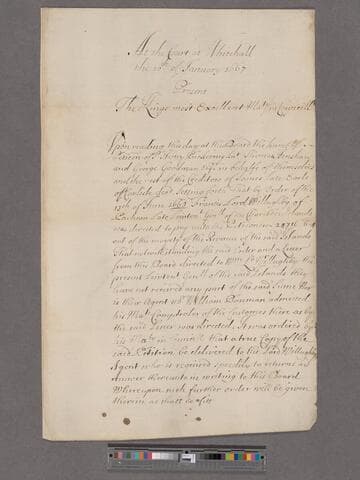 At the Court at Whitehall
the 10th of January 1667
Present
The Kings most Excellent Ma.tie in Councill
Upon reading this day at the Board the humble
Petition of Henry Thomas
and George Goodman in behalfe of themselves
and the rest of the Creditors of James late Earle
of Carlisle decd. Setting forth That by Order of the
17th of June 1663 Francis Lord Willughby of
Parham Late Lieutent Gen.ll of the Islands
was directed to pay unto the Petitioners
out of the moyety of the Revenue of the said Islands
That notwithstanding the said Order and a Letter
from this Board directed to Wm Willughby the
present Lieutent Genll of the said Islands they
have not received any part of the said Sume Nor
is their Agent Mr William Denman admitted
his Ma.ts Comptroler of the Customes there as by
the said Letter was directed, It was ordered by
his Ma.tie in Councill That a true Copy of the
said Petition be delivered to the Lord Willughby
Agent who is required speedily to returne an
Answer thereunto in writing to this Board
Whereupon such further order will be given
therein as shall be fitt